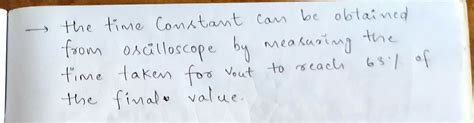 → the time Constant can be obtained
from oscilloscope by measuring the
time taken for vout to reach 63% of
the final value.